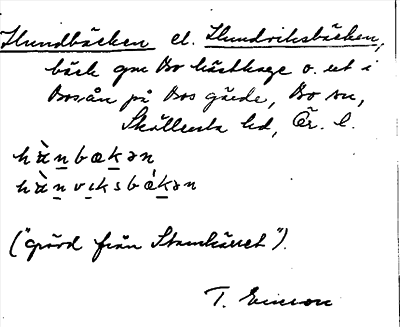 Hundbäcken el. Hundriksbäcken,
bäck gm Bo hästhage o. ut i
Bosån på Bos gärde, Bo sn,
Skyllersta hd, Ör. l.
hànbækən
hànriksbækən
("grävd från Stamkärret").
T. Ericson